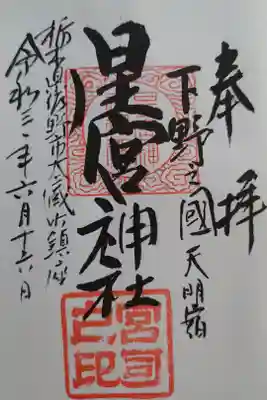 奉拝
下野之國天明宿
星宮神社
栃木県佐野市大蔵町鎮座
令和三年六月十六日
宮司之印